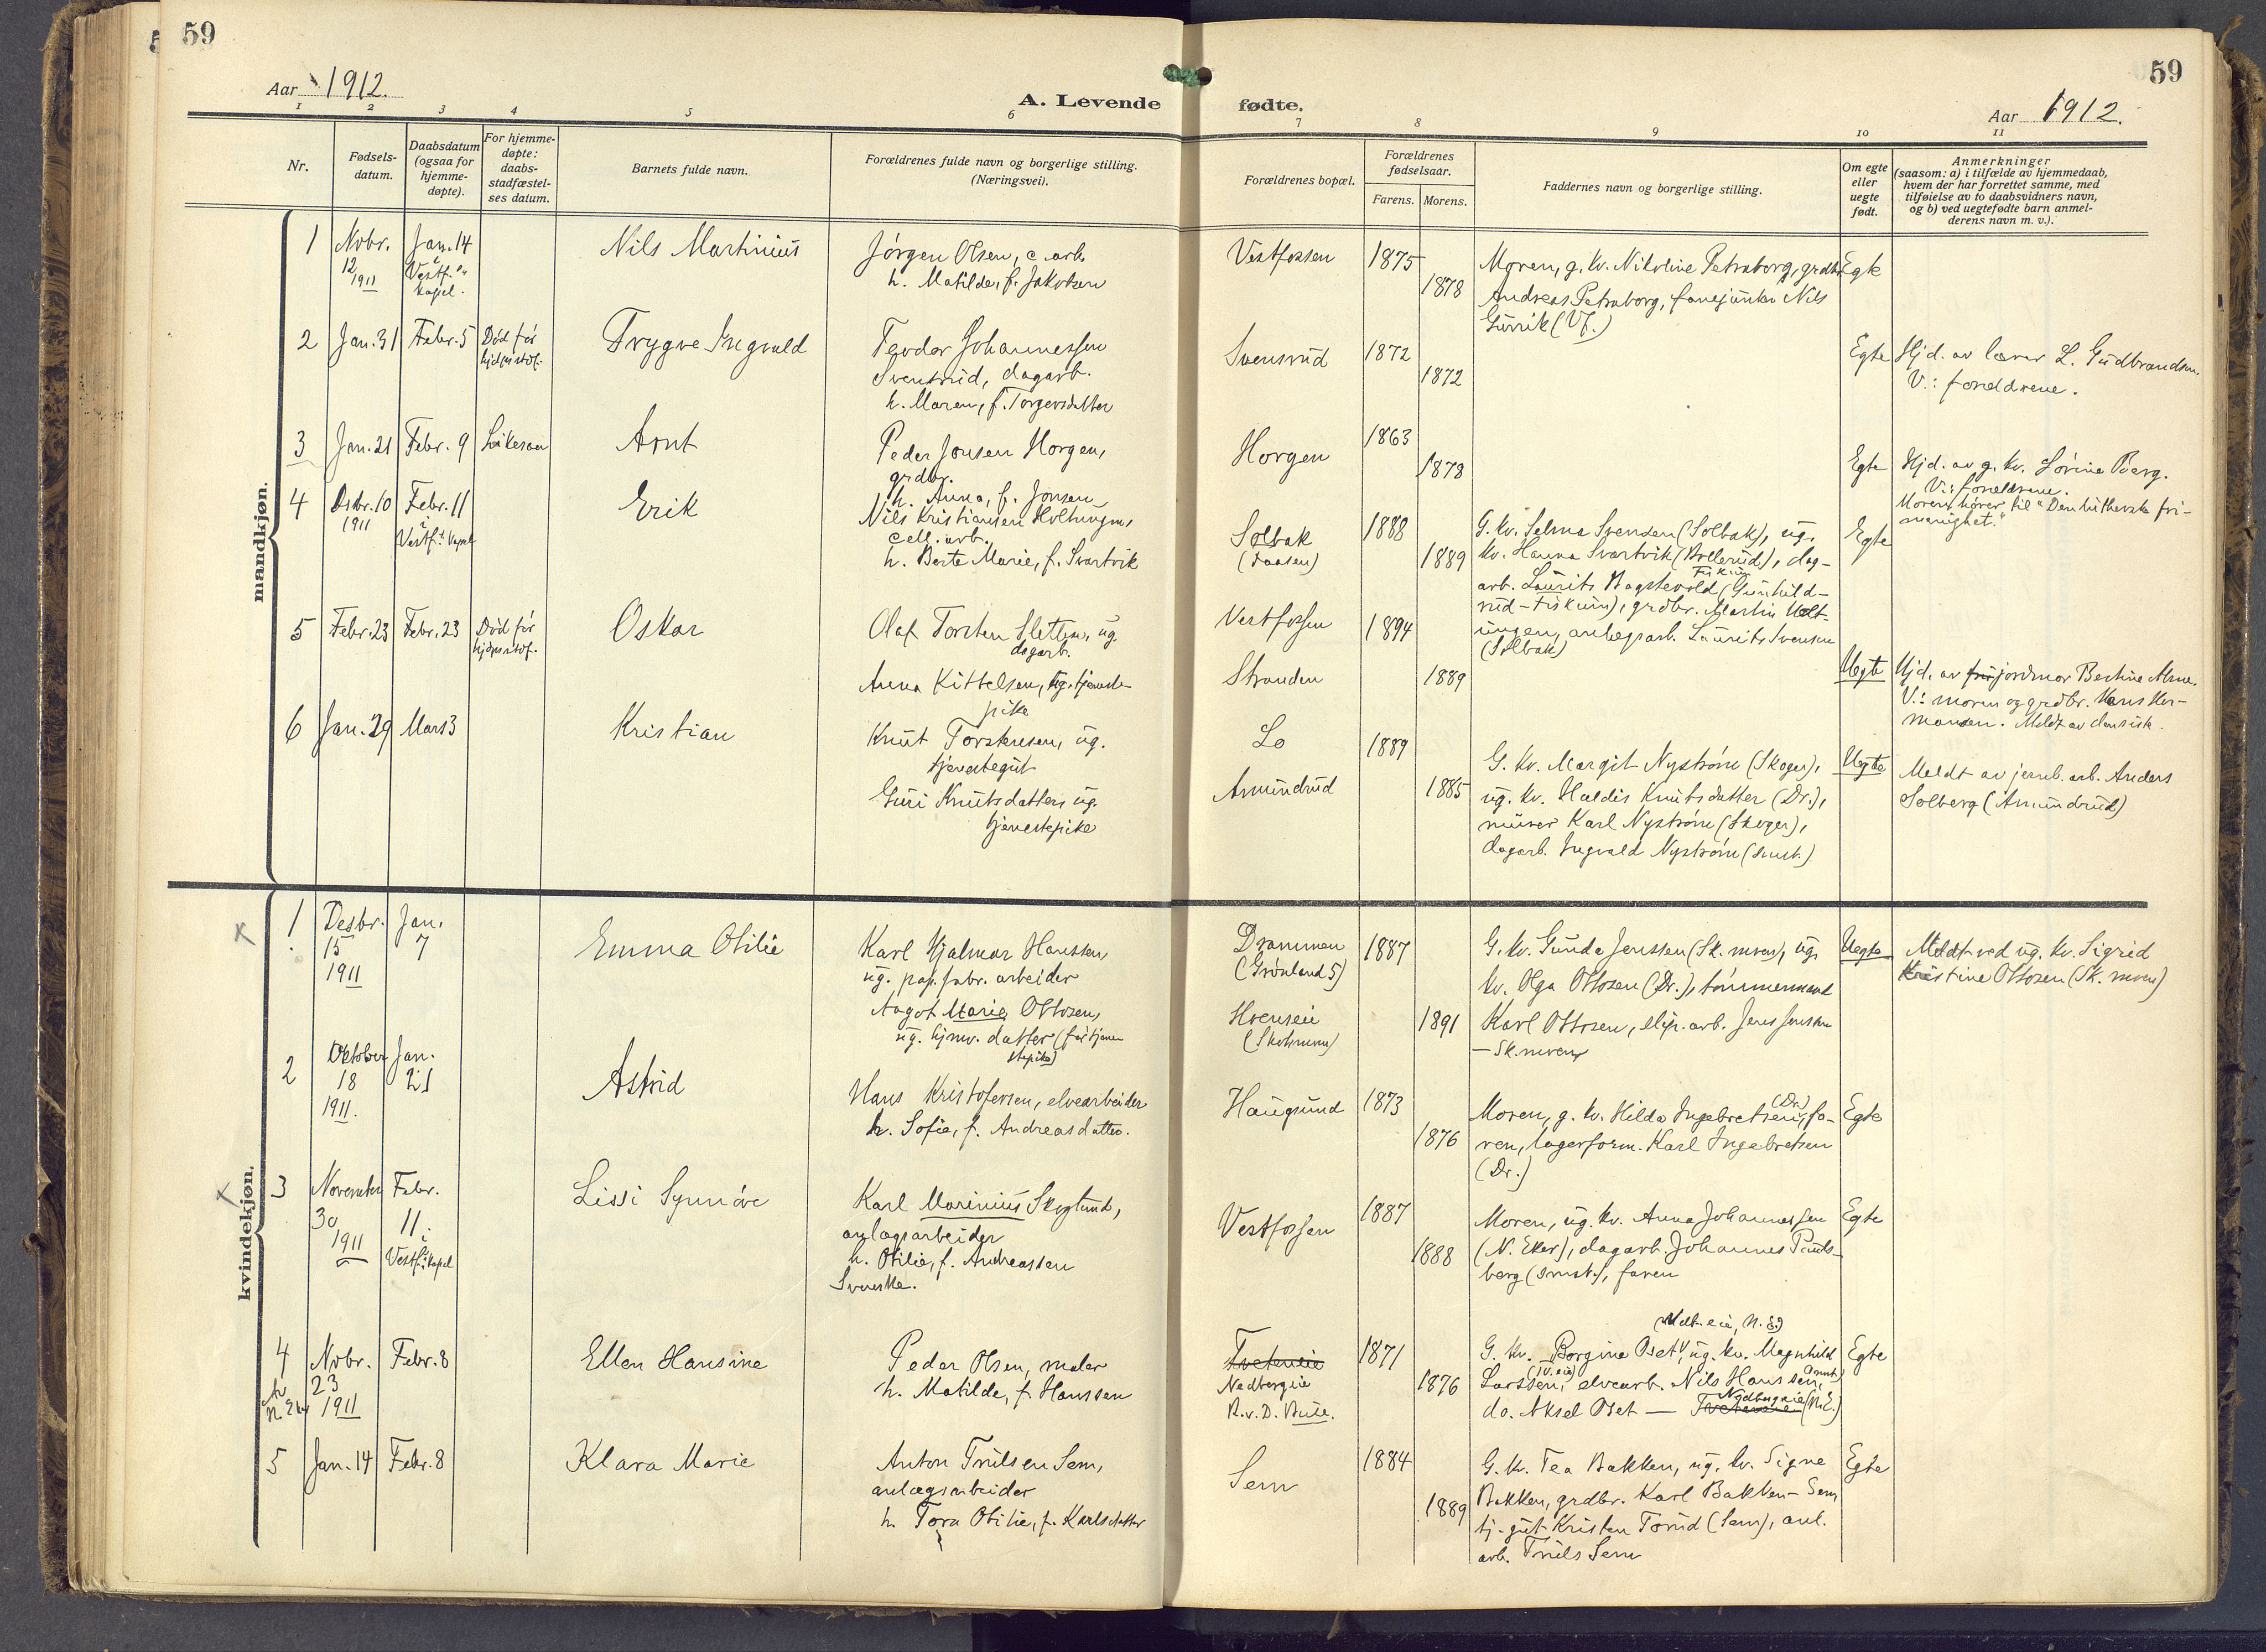 59
59
Aar 1912.
A. Levende fødte.
Aar 1912.
1 2 3 4 5 6 7 8 9 10 11
Nr.
Fødsels-
datum.
Daabsdatum
(ogsaa for
hjemme-
døpte).
For hjemme-
døpte:
daabs-
stadfæstel-
ses datum.
Barnets fulde navn.
Forældrenes fulde navn og borgerlige stilling.
(Næringsvei).
Forældrenes bopæl.
Forældrenes
fødselsaar.
Farens. Morens.
Faddernes navn og borgerlige stilling.
Om egte
eller
uegte
født.
Anmerkninger
(saasom: a) i tilfælde av hjemmedaab,
hvem der har forrettet samme, med
tilføielse av to daabsvidners navn,
og b) ved uegtefødte barn anmel-
derens navn m. v.).
mandkjøn.
1
Nvbr.
12
1911
Jan. 14
i
Vestf.
kapel.
Nils Martinius
Jørgen Olsen, c. arb.
h. Matilde, f. Jakobsen
Vestfossen
1875
1878
Moren, g. kv. Nikoline Petraborg, grdbr.
Andreas Petraborg, fanejunker Nils
Gurrik (Vf.)
Egte
2
Jan. 31
Febr. 5
Død før
hjd. stadf.
Trygve Ingvald
Teodor Johannessen
Svensrud, dagarb.
h. Maren, f. Torgersdatter
Svensrud
1872
1872
Egte
Hjd. av lærer L. Gudbrandsen.
V.: forældrene.
3
Jan. 21
Febr. 9
Likesaa
Arnt
Peder Jonsen Horgen,
grdbr.
h. Anna, f. Jonsen
Horgen
1863
1878
Egte
Hjd. av g. kv. Lovine Berg.
V.: forældrene.
Moren hører til "Den lutherske fri-
menighet."
4
Dsbr. 10
1911
Febr. 11
i
Vestf. kapel
Erik
Nils Kristiansen Holtungen,
cell. arb.
h. Berte Marie, f. Svartvik
Solbak
(Daasen)
1888
1889
G. kv. Selma Svensen (Solbak), ug.
kv. Hanna Svartvik (Bollerud), dag-
arb. Laurits Bagstevold (Gunhild-
rud - Fiskum), grdbr. Martin Holt-
ungen, anlegsarb. Laurits Svensen
(Solbak)
Egte
5
Febr. 23
Febr. 23
Død før
hjd. stadf.
Oskar
Olaf Torsten Sletten, ug.
dagarb.
Anna Kittelsen, ug. tjeneste-
pike
Vestfossen
Stranden
1894
1889
Uegte
Hjd. av jordmor Bertine Alme.
V.: moren og grdbr. Hans Her-
mansen. Meldt av densisk.
6
Jan. 29
Mars 3
Kristian
Knut Torstensen, ug.
tjenestegut
Guri Knutsdatter, ug.
tjenestepike
Lo
Amundrud
1889
1885
G. kv. Margit Nystrøm (Skoger),
ug. kv. Haldis Knutsdatter (Dr.),
murer Karl Nystrøm (Skoger),
dagarb. Ingvald Nystrøm (smst.)
Uegte
Meldt av jernb. arb. Anders
Solberg (Amundrud)
kvindekjøn.
1
Desbr.
15
1911
Jan.
7
Emma Otilie
Karl Hjalmar Hanssen,
ug. pap. fabr. arbeider
Aagot Marie Ottosen,
ug. hjmv. datter (før tjene
stepike)
Drammen
(Grønland 5)
Hvenseie
1887
1891
G. kv. Gunda Jenssen (Sk. moen), ug.
kv. Olga Ottosen (Dr.), tømmermand
Karl Ottosen, slip. arb. Jens Jenssen
- Sk. moen
Uegte
Meldt ved ug. kv. Sigrid
Kristine Ottosen (Sk. moen)
2
Oktober
18
1911.
Jan.
21
Astrid
Hans Kristofersen, elvearbeider
h. Sofie, f. Andreasdatter.
Haugsund
1873
1876
Moren, g. kv. Hilda Ingebretsen (Dr.), fa-
ren, lagerform. Karl Ingebretsen
(Dr.)
Egte
3
November
30
1911
Febr.
11
i
Vestf. kapel
Lissi Synnøve
Karl Marinius Skoglund,
anlægsarbeider
h. Otilie, f. Andreassen
Svenske.
Vestfossen
1887
1888
Moren, ug. kv. Anna Johannessen
(N. Eker), dagarb. Johannes Pauls-
berg (smst.), faren
Egte
4
N. Eker
Nvbr.
23
1911
Febr. 8
Ellen Hansine
Peder Olsen, maler
h. Matilde, f. Hanssen
Tveteneie
Nedbergeie
1871
1876
(Vedb. eie, N. E.)
G. kv. Borgine Oset, ug. kv. Magnhild
Larssen, elvearb. Nils Hanssen (smst.),
do. Aksel Oset - Tveteneie Nedbergeie (N. E.)
Egte
5
Jan. 14
Febr. 8
Klara Marie
Anton Trulsen Sem,
anlægsarbeider
h. Tora Otilie, f. Karlsdatter
Sem
1884
1889
G. kv. Tea Bakken, ug. kv. Signe
Bakken, grdbr. Karl Bakken - Sem
tj. gut Kristen Torud (Sem), anl.
arb. Truls Sem
Egte